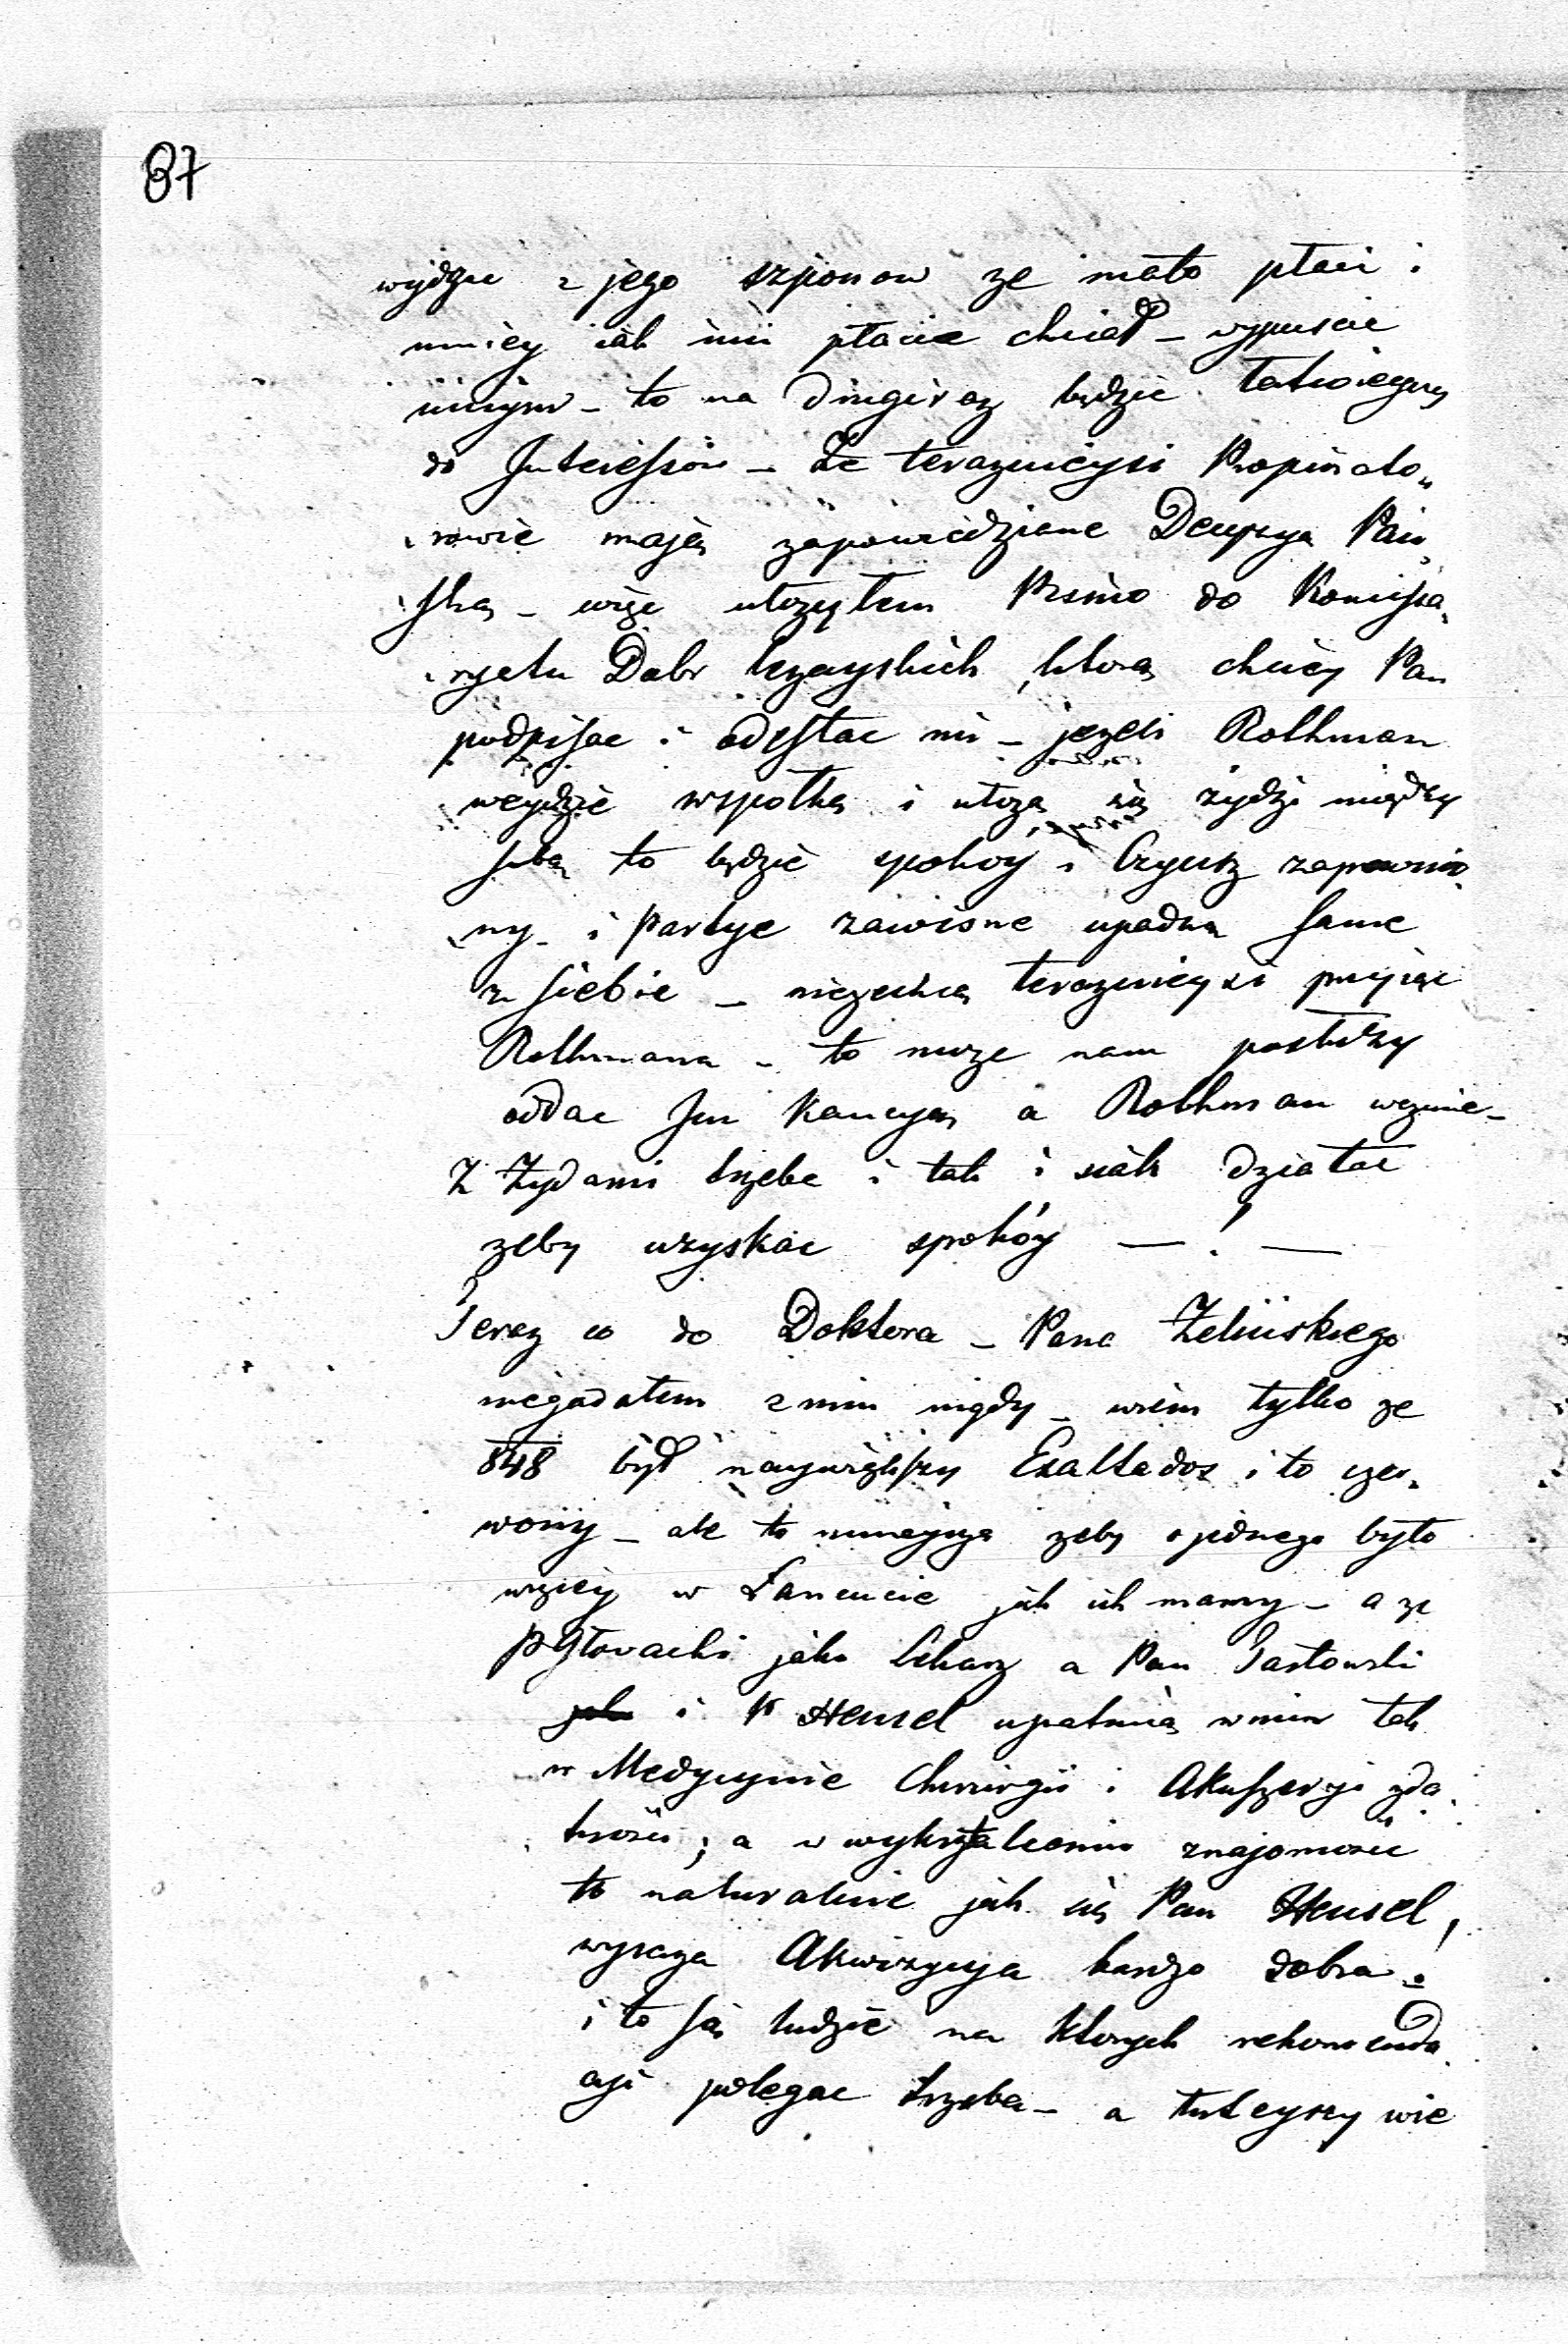 87
wyjdzie z jego szponow ze mało płaci i
mniey iak inni płacic chciał – wypuscic
innym – to na drugi raz będzie łatwieyszy
do Interessow – Ze terazniejsi Propinato„
rowie mają zapowiedziane Decyzyą Pań„
ską – więc ułozyłem Pismo do Komissa„
ryatu Dobr Łęzayskich ktorą chciey Pan
podpisac i odesłac mi – jezeli Rothman
weydzie wspołką i ułozą się żydzi między
sobą to będzie spokoy i Czynsz zapewnio„
ny – i Partye zawisne upadną same
z siebie – niezechcą teraznieysi przyiąc
Rothmana – to moze nam posłuzy
oddac Im Kaucyą a Rothman wezmie –
Z Żydami trzeba i tak i siak działac
zeby uzyskac spokóy — ! —
Teraz co do Doktora – Pana Zelińskiego
niegadałem z nim nigdy – wiem tylko ze
848 był naywiększy Exaltados i to czer„
wony – ale to mnieysza zeby o jednego było
więcey w Łancucie jak ich mamy – a ze
P Głowacki jako Lekarz a Pan Jasłowski
i P Hensel upatruią w nim tak
w Medycynie Chirurgii i Akuszeryi zda„
tności; a w wykształceniu znajomosci
to naturalnie jak się Pan Hensel,
wyraza Akwizycya bardzo dobra.
i to są ludzie na ktorych rekomenda
cyi polegac trzeba – a tuteyszy wie